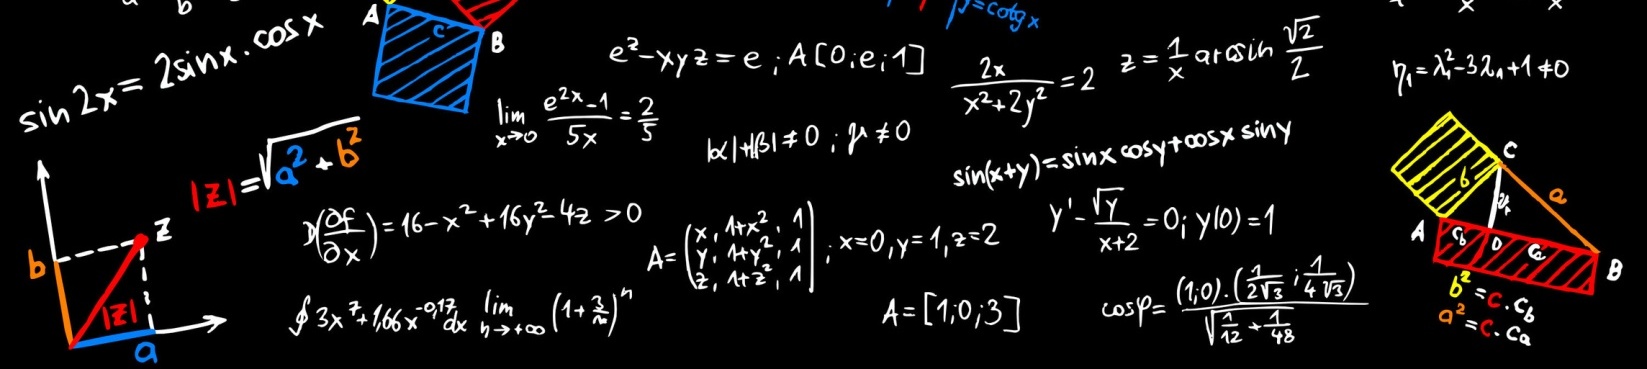 a b
sin 2x = 2sinx . cosx
A c B
y = cotg x
e^z - xyz = e ; A[0;e;1]
2x / (x² + 2y²) = 2
z = 1/x arcsin √2/2
x x
η₁ = λ₁² - 3λ₁ + 1 ≠ 0
lim x→0 (e^2x - 1)/5x = 2/5
|α| + |β| ≠ 0 ; γ ≠ 0
sin(x+y) = sinx cosy + cosx siny
|z| = √(a² + b²)
b z |z| a
(∂f/∂x) = 16 - x² + 16y² - 4z > 0
A = (x, 1+x², 1
y, 1+y², 1
z, 1+z², 1) ; x=0, y=1, z=2
y' - √y/(x+2) = 0; y(0) = 1
∮ 3x⁷ + 1,66x^-0,17 dx lim n→+∞ (1 + 3/n)^n
A = [1;0;3]
cosφ = (1;0) . (1/2√3 ; 1/4√3) / √(1/12 + 1/48)
C b a
A c_b D c_a B
b² = c . c_b
a² = c . c_a